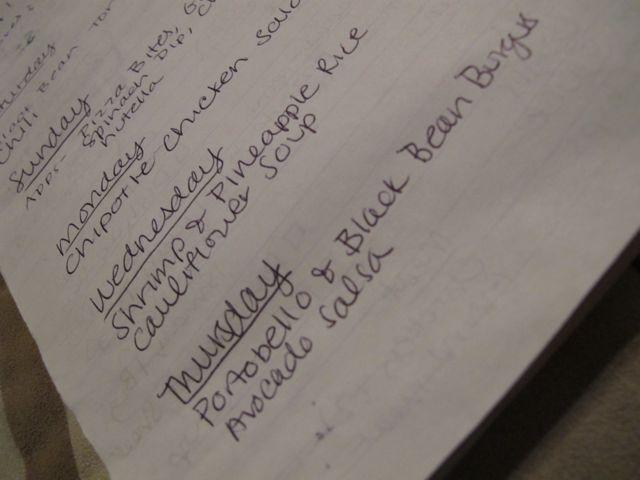 Chili Bean
Sunday
Apps - Pizza Bites,
Spinach Dip,
nutella
monday
Chipotle Chicken
Wednesday
Shrimp & Pineapple Rice
Cauliflower Soup
Thursday
Portobello & Black Bean Burgers
Avocado Salsa